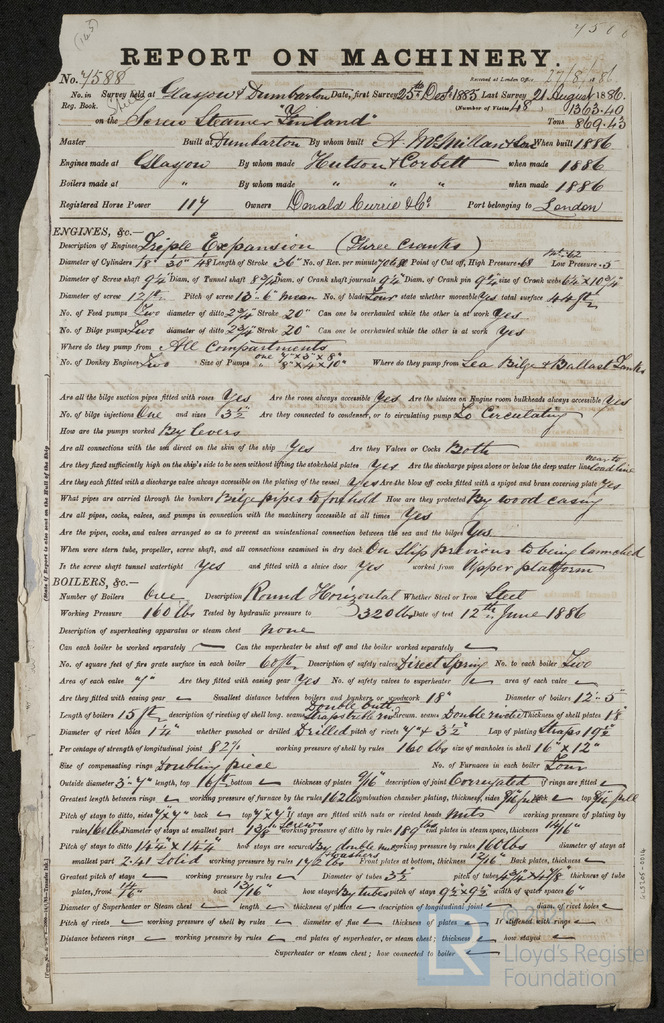 REPORT ON MACHINERY.
No. 7588
Received at London Office 27/8/86
No. in Survey held at Glasgow & Dumbarton Date, first Survey 25th Decr 1885 Last Survey 21 August 1886.
Reg. Book. (Number of Visits 48) 1363.49
on the Screw Steamer "Finland" Tons 869.43
Master Built at Dumbarton By whom built A. McMillan & Son When built 1886
Engines made at Glasgow By whom made Hutson & Corbett when made 1886
Boilers made at " By whom made " " " when made 1886
Registered Horse Power 117 Owners Donald Currie & Co Port belonging to London
ENGINES, &c.—
Description of Engines Triple Expansion (Three Cranks)
Diameter of Cylinders 18" 30" 48 Length of Stroke 36" No. of Rev. per minute Point of Cut off, High Pressure .68 Low Pressure .5
Diameter of Screw shaft 9¼" Diam. of Tunnel shaft Diam. of Crank shaft journals 9¼" Diam. of Crank pin 9¼" size of Crank webs
Diameter of screw 12 ft Pitch of screw 13-6" mean No. of blades Four state whether moveable Yes total surface 44 ft
No. of Feed pumps Two diameter of ditto 2¾" Stroke 20" Can one be overhauled while the other is at work Yes
No. of Bilge pumps Two diameter of ditto 2¾" Stroke 20" Can one be overhauled while the other is at work Yes
Where do they pump from All Compartments
No. of Donkey Engines Two Size of Pumps one Where do they pump from Sea Bilge & Ballast Tanks
Are all the bilge suction pipes fitted with roses Yes Are the roses always accessible Yes Are the sluices on Engine room bulkheads always accessible Yes
No. of bilge injections One and sizes 3½ Are they connected to condenser, or to circulating pump To Circulating
How are the pumps worked By levers
Are all connections with the sea direct on the skin of the ship Yes Are they Valves or Cocks Both
Are they fixed sufficiently high on the ship's side to be seen without lifting the stokehold plates Yes Are the discharge pipes above or below the deep water line near to load line
Are they each fitted with a discharge valve always accessible on the plating of the vessel Yes Are the blow off cocks fitted with a spigot and brass covering plate Yes
What pipes are carried through the bunkers Bilge pipes to fore hold How are they protected By wood casing
Are all pipes, cocks, valves, and pumps in connection with the machinery accessible at all times Yes
Are the pipes, cocks, and valves arranged so as to prevent an unintentional connection between the sea and the bilges Yes
When were stern tube, propeller, screw shaft, and all connections examined in dry dock On Slip previous to being launched
Is the screw shaft tunnel watertight Yes and fitted with a sluice door Yes worked from Upper platform
BOILERS, &c.—
Number of Boilers One Description Round Horizontal Whether Steel or Iron Steel
Working Pressure 160 lbs Tested by hydraulic pressure to 320 lbs Date of test 12th June 1886
Description of superheating apparatus or steam chest none
Can each boiler be worked separately Can the superheater be shut off and the boiler worked separately
No. of square feet of fire grate surface in each boiler 60 ft Description of safety valves Direct Spring No. to each boiler Two
Area of each valve Are they fitted with easing gear Yes No. of safety valves to superheater area of each valve
Are they fitted with easing gear Smallest distance between boilers and bunkers or woodwork 18" Diameter of boilers 12-5
Length of boilers 15 ft description of riveting of shell long. seams Double butt straps circum. seams Double Thickness of shell plates
Diameter of rivet holes whether punched or drilled Drilled pitch of rivets Lap of plating Straps 19½
Percentage of strength of longitudinal joint 82% working pressure of shell by rules 160 lbs size of manholes in shell 16" x 12"
Size of compensating rings Doubling piece No. of Furnaces in each boiler Four
Outside diameter 3-7" length, top bottom thickness of plates 9/16" description of joint Corrugated if rings are fitted
Greatest length between rings working pressure of furnace by the rules 162 lbs combustion chamber plating, thickness, sides back top
Pitch of stays to ditto, sides back top If stays are fitted with nuts or riveted heads nuts working pressure of plating by
rules 160 lbs Diameter of stays at smallest part 189 lbs end plates in steam space, thickness
Pitch of stays to ditto how stays are secured By double nuts & washers working pressure by rules 160 lbs diameter of stays at
smallest part 2.41 Solid working pressure by rules Front plates at bottom, thickness Back plates, thickness
Greatest pitch of stays working pressure by rules Diameter of tubes 3½ pitch of tubes thickness of tube
plates, front back 13/16" how stayed By tubes pitch of stays 9½ x 9½ width of water spaces 6"
Diameter of Superheater or Steam chest length thickness of plates description of longitudinal joint diam. of rivet holes
Pitch of rivets working pressure of shell by rules diameter of flue thickness of plates If stiffened with rings
Distance between rings working pressure by rules end plates of superheater, or steam chest; thickness how stayed
Superheater or steam chest; how connected to boiler
Lloyd's Register
Foundation